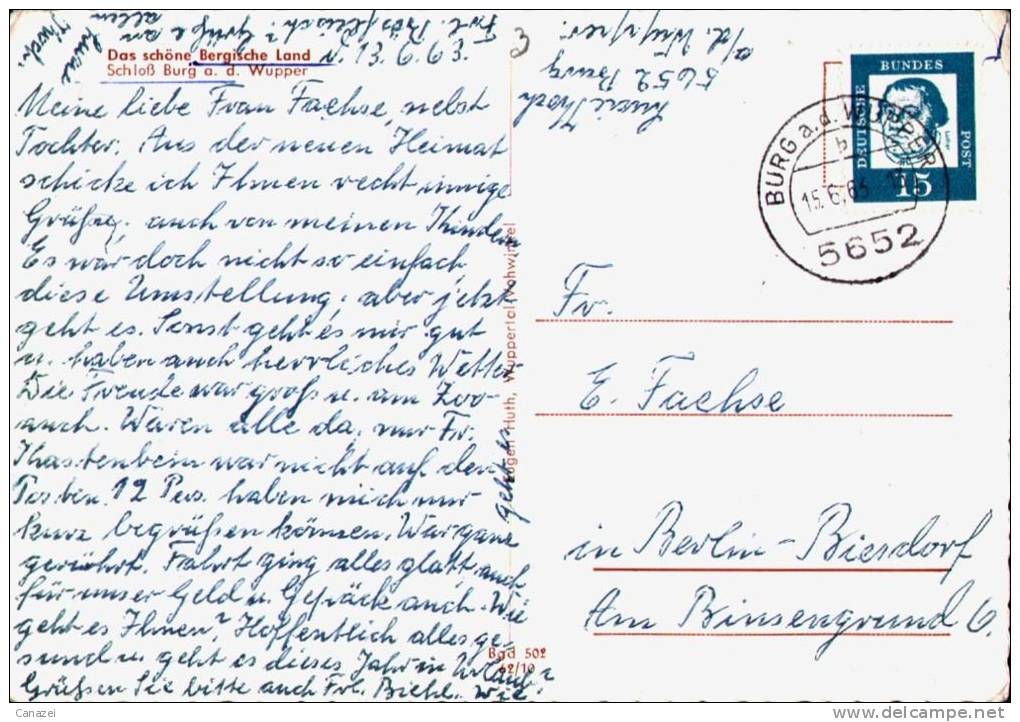 Das schöne Bergische Land
Schloß Burg a. d. Wupper
d. 13.6.63.
Meine liebe Frau Fachse, nebst
Tochter. Aus der neuen Heimat
schicke ich Ihnen recht innige
Grüße, auch von meinen Kindern
Es war doch nicht so einfach,
diese Umstellung, aber jetzt
geht es. Sonst geht es mir gut
u. haben auch herrliches Wetter
Die Freude war groß u. am Zoo
auch. Waren alle da, nur Fr.
Kastenbein war nicht auf der
12 Pers. haben mich nur
kurz begrüßen können. War ganz
gerührt. Fahrt ging alles glatt, auch
für unser Geld u. Gepäck auch. Wie
geht es Ihnen? Hoffentlich alles ge-
sund u. geht es dieses Jahr in Urlaub?
Grüßen Sie bitte auch Frl. Biehl. Wie
geht es
Frl.
Grüße an
allen
Ihre
Koch
5652 Burg
a/d. Wupper
Eugen Huth, Wuppertal-Vohwinkel
Bgd 502
62/10
3
DEUTSCHE
BUNDES
POST
15
BURG a. d. WUPPER
b
15.6.63
5652
Fr.
E. Fachse
in Berlin-Biesdorf
Am Binsengrund 6.
Canazei
www.delcampe.net